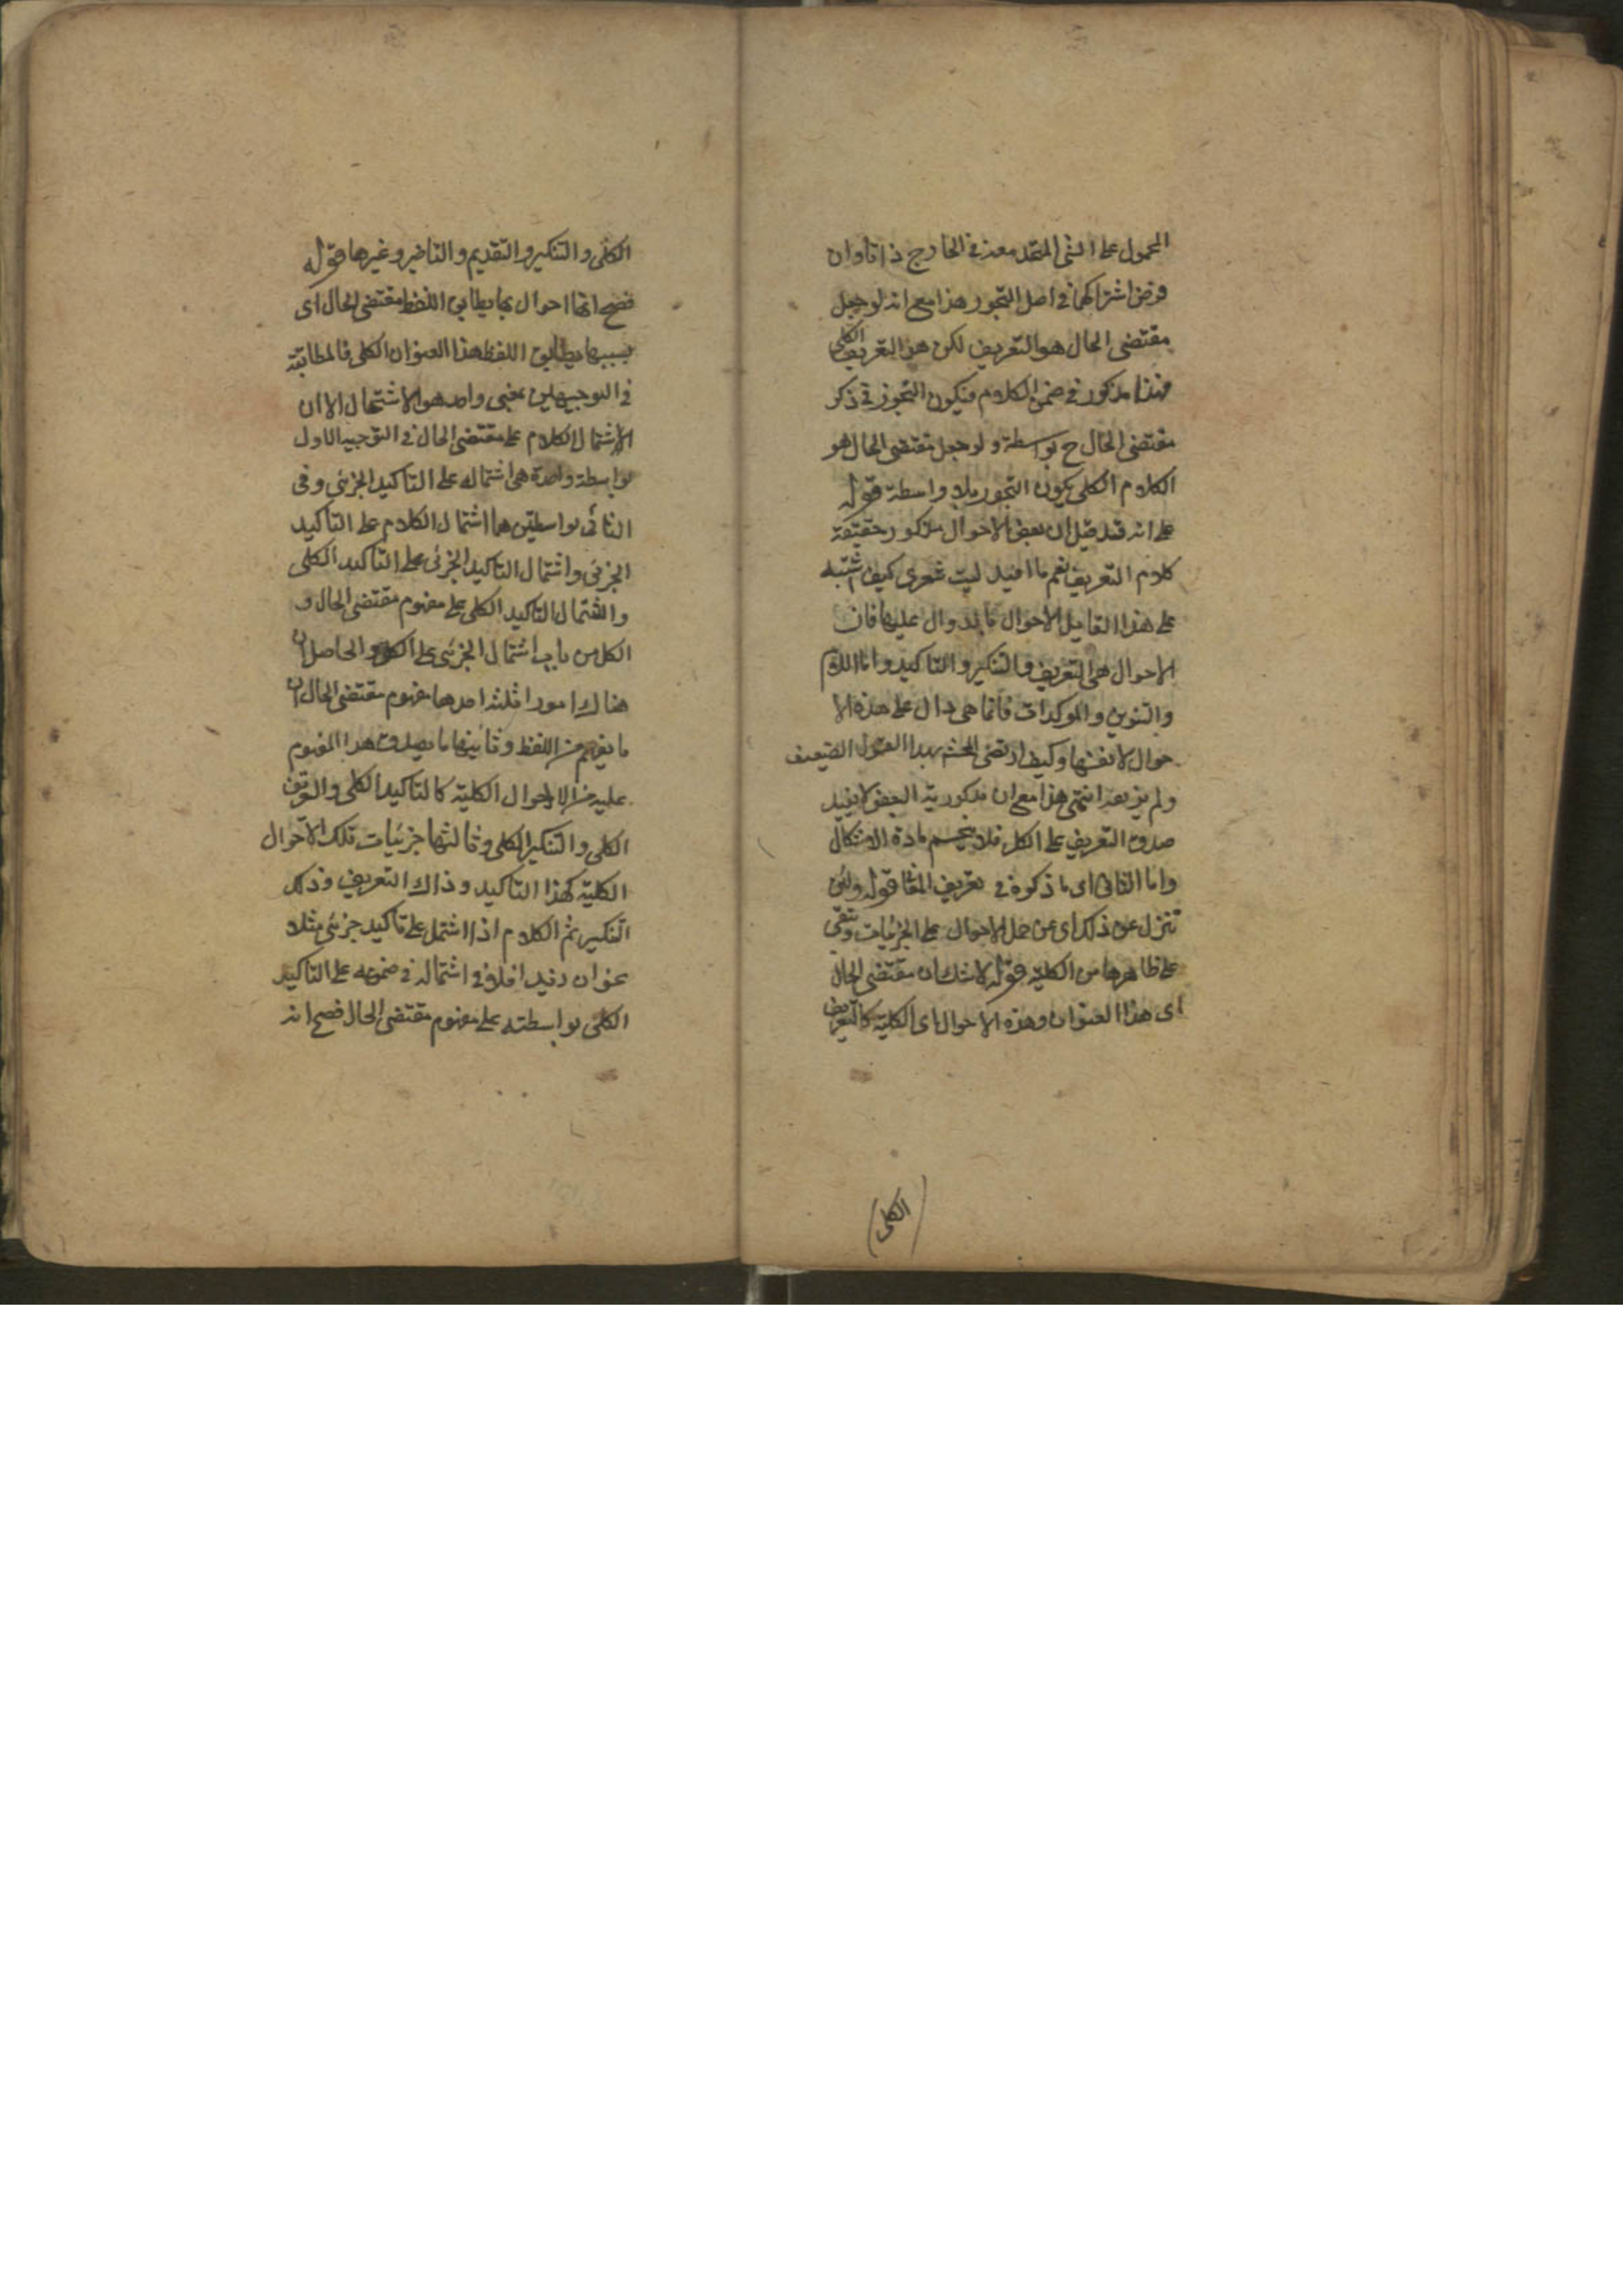 المحمول على الشئ المتحد معه في الخارج ذاتا وان
فرض اشتراكهما في اصل التجوز هذا مع انه لو جعل
مقتضى الحال هو التعريف لكن هذا التعريف الكلى
فهذا مذكور في ضمن الكلام فيكون التجوز في ذكر
مقتضى الحال ح بواسطة ولو جعل مقتضى الحال هو
الكلام الكلى يكون التجوز بلا واسطة قوله
على انه قد قيل ان بعض الاحوال مذكور حقيقة
كلام التعريف نعم ما افيد ليت شعرى كيف اشتبه
على هذا القايل الاحوال بالدوال عليها فان
الاحوال هى التعريف والتنكير والتاكيد واما اللام
والتنوين والموكدات فانما هى دال على هذه الا
حوال لا نفسها وكيف ارتضى المحشى بهذا القول الضعيف
ولم يزيفه انتهى هذا مع ان مذكورية البعض لا يفيد
صدق التعريف على الكل فلا ينحسم مادة الاشكال
واما الثانى اى ما ذكره في تعريف المعا قوله ولئن
تنزل عن ذلك اى عن حمل الاحوال على الجزئيات وتبقى
على ظاهرها من الكلية قوله لا شك ان مقتضى الحال
اى هذا العنوان وهذه الاحوال اى الكلية كالتعريف
الكلى
الكلى والتنكير والتقديم والتاخير وغيرها قوله
فصح انها احوال بها يطابق اللفظ مقتضى الحال اى
بسببها يطابق اللفظ هذا العنوان الكلى فالمطابقة
في التوجيهين بمعنى واحد هو الاشتمال الا ان
الاشتمال الكلام على مقتضى الحال في التوجيه الاول
بواسطة واحدة هى اشتماله على التاكيد الجزئى وفى
الثانى بواسطتين هما اشتمال الكلام على التاكيد
الجزئى واشتمال التاكيد الجزئى على التاكيد الكلى
والشتمال التاكيد الكلى على مفهوم مقتضى الحال و
الكل من باب اشتمال الجزئى على الكل والحاصل ان
هناك امورا ثلثة احدها مفهوم مقتضى الحال اى
ما يفهم من اللفظ وثانيها ما يصدق هذا المفهوم
عليه من الاحوال الكلية كالتاكيد الكلى والتعريف
الكلى والتنكير الكلى وثالثها جزئيات تلك الاحوال
الكلية كهذا التاكيد وذاك التعريف وذلك
التنكير ثم الكلام اذا اشتمل على تاكيد جزئى مثلا
نحو ان زيدا فلا في اشتماله في ضمنه على التاكيد
الكلى بواسطته على مفهوم مقتضى الحال فصح انه